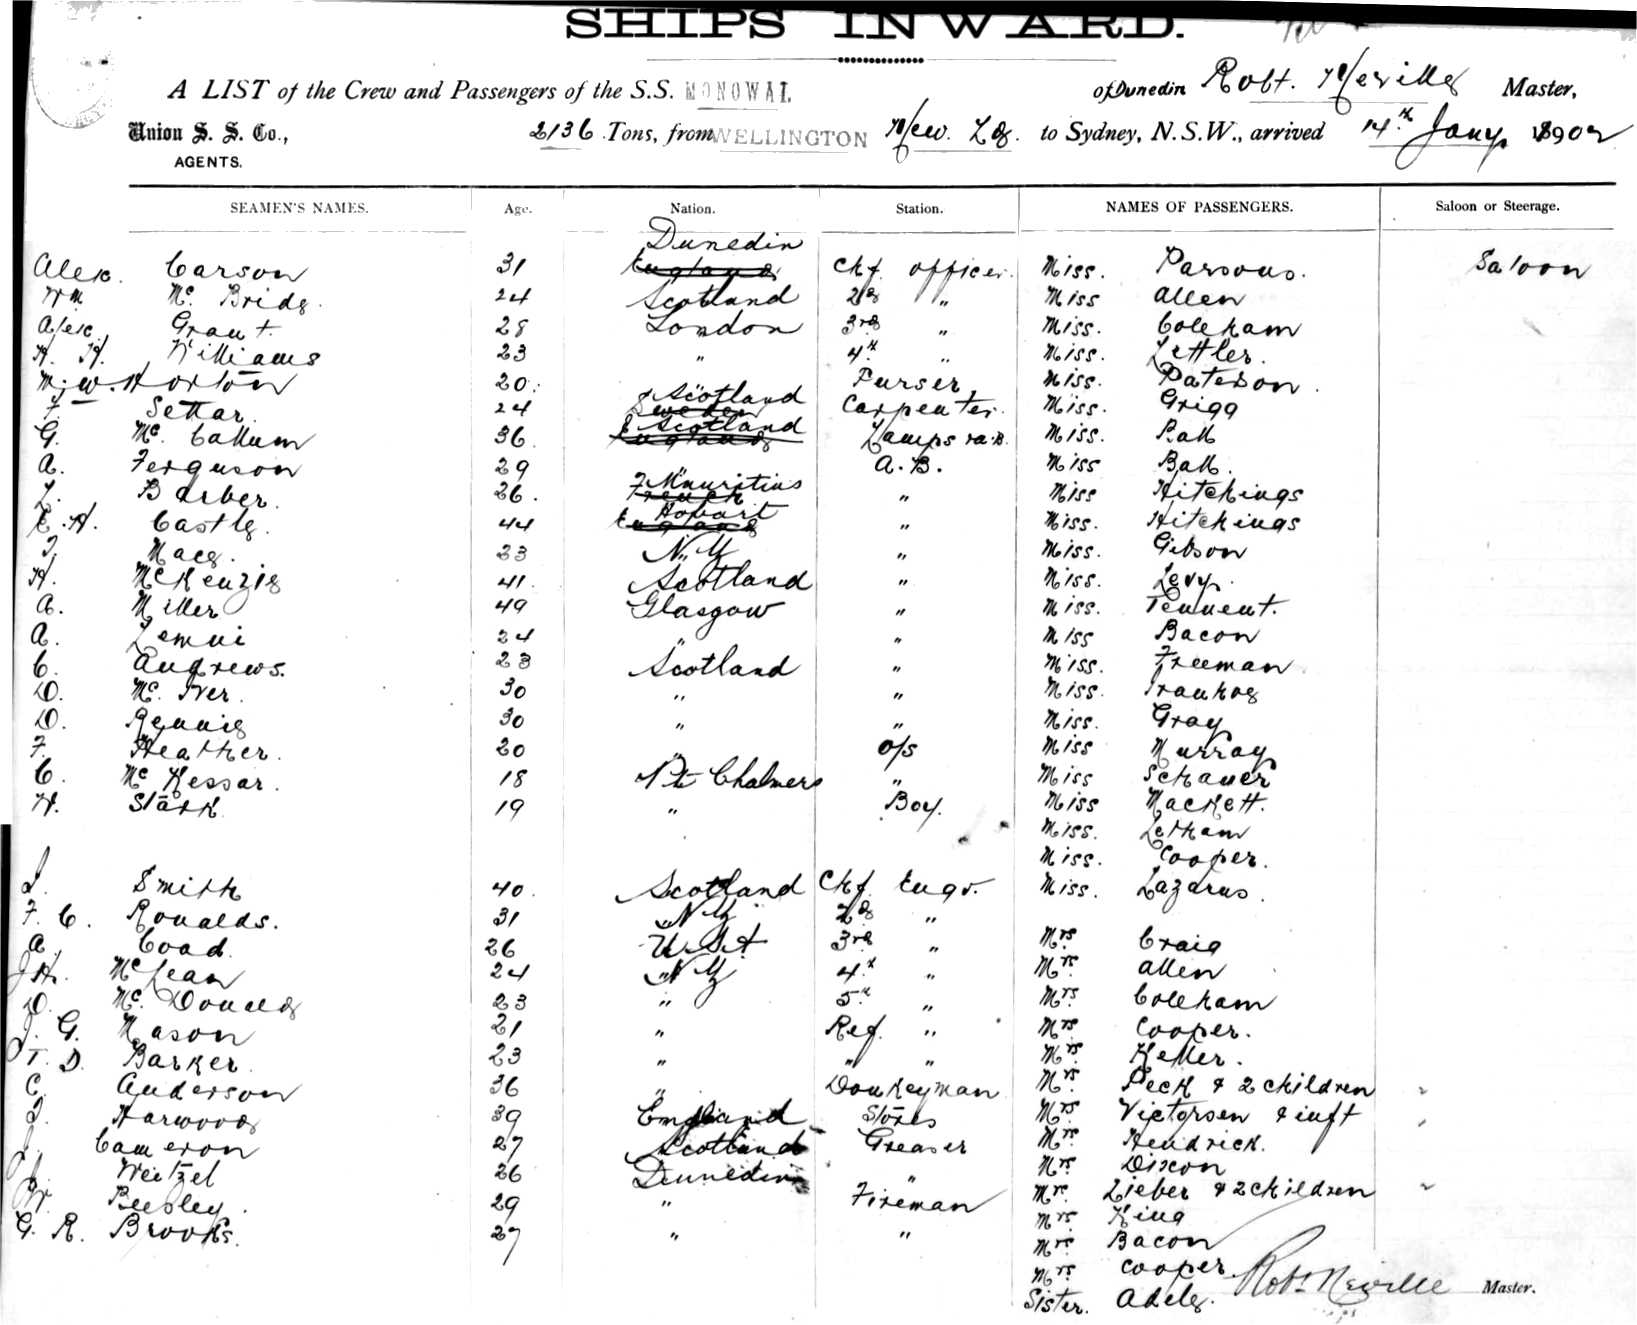 SHIPS INWARD.
A LIST of the Crew and Passengers of the S.S. MONOWAI of Dunedin Robt. Neville Master,
Union S. S. Co., 2136 Tons, from WELLINGTON New Zd. to Sydney, N.S.W., arrived 14th Jany 1902
AGENTS.
SEAMEN'S NAMES. Age. Nation. Station. NAMES OF PASSENGERS. Saloon or Steerage.
Dunedin
Alex. Carson 31 England Chf officer. Miss. Parsons. Saloon
Wm Mc. Bride. 24 Scotland 2d " Miss Allen
Alex. Grant. 28 London 3rd " Miss. Coleham
H. H. Williams 23 " 4th " Miss. Lettler.
M. W. Horton 20. " Purser Miss. Paterson.
Scotland
F Settar. 24 Sweden Carpenter. Miss. Grigg
Scotland
G. Mc. Callum 36. England Lamps Miss. Ball
A. Ferguson 29 " A.B. Miss Ball.
Mauritius
L. Barber. 26. French " Miss Hitchings
Hobart
E. H. Castle. 44 England " Miss. Hitchings
J. Mace. 23 N.Z " Miss. Gibson
H. McKenzie 41. Scotland " Miss. Levy.
A. Miller 49 Glasgow " Miss. Tennent.
A. 24 " " Miss Bacon
C. Andrews. 23 Scotland " Miss. Freeman
D. Mc. Iver. 30 " " Miss. Ivanhoe
D. Rennie 30 " " Miss. Gray
F. Heather. 20 " o/s Miss Murray
C. Mc Kessar. 18 Pt Chalmers " Miss Schauer
W. Stark 19 " Boy. Miss Mackett.
Miss. Letham
Miss. Cooper.
J. Smith 40. Scotland Chf Engr. Miss. Lazarus.
F. C. Ronalds. 31 NZ 2d "
A Coad. 26 USA 3rd " Mrs Craig
J H. McLean 24 NZ 4th " Mrs. Allen
D. Mc. Donald 23 " 5th " Mrs. Coleham
J. G. Mason 21 " Ref. " Mrs Cooper.
T. D. Barker. 23 " " " Mrs Keller.
C. Anderson 36 " Donkeyman Mrs Peck & 2 children "
J. Harwood 39 England Stores Mrs Victorsen & inft "
J. Cameron 27 Scotland Greaser Mrs. Hendrick.
Weitzel 26 Dunedin " Mrs Dixon
W. Beesley. 29 " Fireman Mrs. Lieber & 2 children "
G. R. Brooks. 27 " " Mrs. King
Mrs. Bacon
Mrs Cooper. Robt Neville Master.
Sister. Adele.